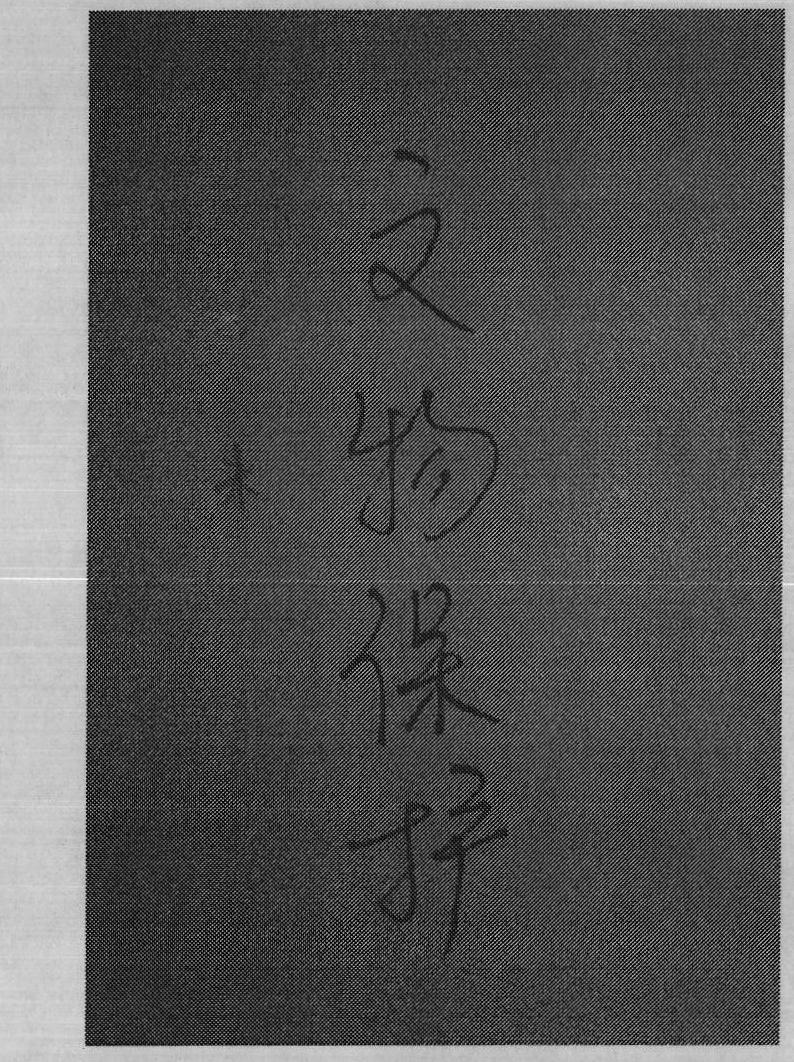 文物保护